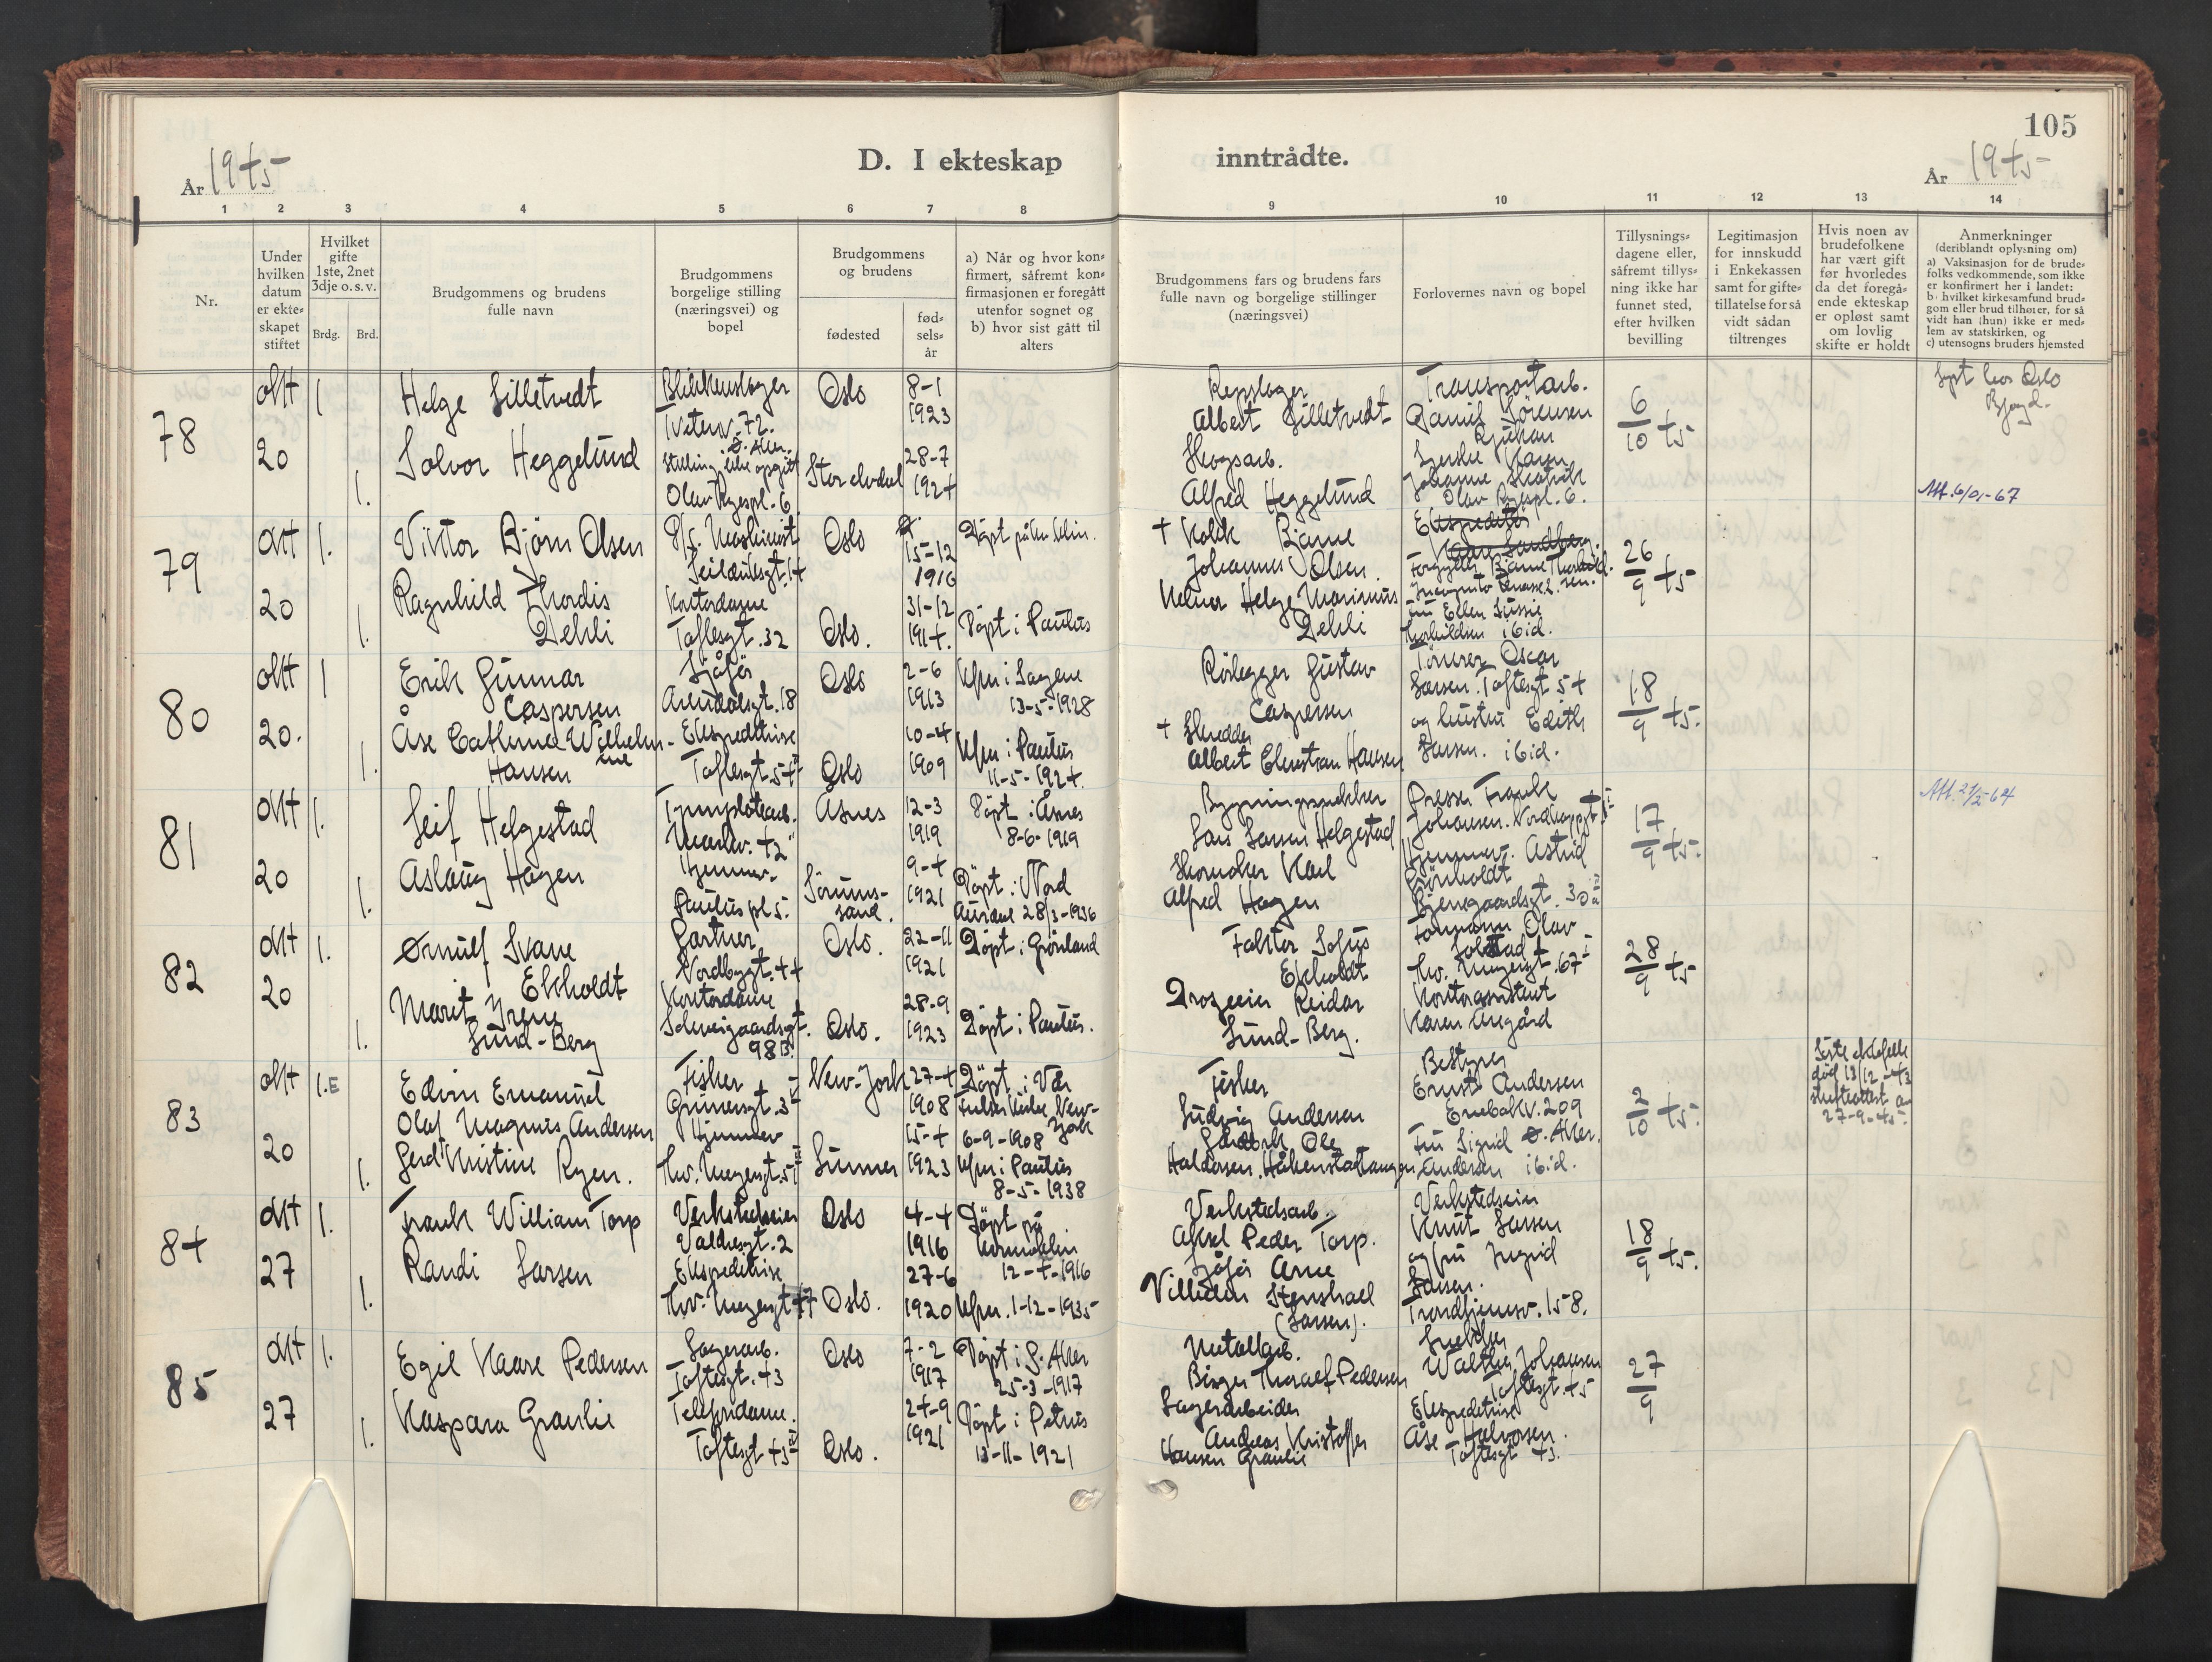 105
År 1945
D. I ekteskap inntrådte.
År 1945
1 2 3 4 5 6 7 8 9 10 11 12 13 14
Nr.
Under
hvilken
datum
er ekte-
skapet
stiftet
Hvilket
gifte
1ste, 2net
3dje o. s. v.
Brdg. Brd.
Brudgommens og brudens
fulle navn
Brudgommens
borgelige stilling
(næringsvei) og
bopel
Brudgommens
og brudens
fødested
fød-
sels-
år
a) Når og hvor kon-
firmert, såfremt kon-
firmasjonen er foregått
utenfor sognet og
b) hvor sist gått til
alters
Brudgommens fars og brudens fars
fulle navn og borgelige stillinger
(næringsvei)
Forlovernes navn og bopel
Tillysnings-
dagene eller,
såfremt tillys-
ning ikke har
funnet sted,
efter hvilken
bevilling
Legitimasjon
for innskudd
i Enkekassen
samt for gifte-
tillatelse for så
vidt sådan
tiltrenges
Hvis noen av
brudefolkene
har vært gift
før hvorledes
da det foregå-
ende ekteskap
er opløst samt
om lovlig
skifte er holdt
Anmerkninger
(deriblandt oplysning om)
a) Vaksinasjon for de brude-
folks vedkommende, som ikke
er konfirmert her i landet:
b) hvilket kirkesamfund brud-
gom eller brud tilhører, for så
vidt han (hun) ikke er med-
lem av statskirken, og
c) utensogns bruders hjemsted
78
okt
20
1
1.
Helge Lilletvedt
Solvor Heggelund
Blikkenslager
Tvetenv. 72.
Ø. Aker.
Stilling ikke opgitt
Olav Ryespl. 6
Oslo
Storelvdal
8-1
1923
28-7
1924
Repslager
Albert Lilletvedt
Skogsarb.
Alfred Heggelund
Transportarb.
Daniel Sörensen
Rjukan
Karen
Johanne
Olav Ryespl. 6.
6/10 45
Lyst hos Oslo
Byfogd.
Att. 6/01-67
79
okt
20
1.
1.
Viktor Bjørn Olsen
Ragnhild Thordis
Dehli
Maskinist
Seilduksgt. 14
Kontordame
Toftesgt. 32
Oslo
Oslo.
15-12
1916
31-12
1914.
Döpt på Kv. klin.
Döpt i Paulus
+ Kokk Bjarne
Johannes Olsen.
Kelner Helge Marinius
Dehli
Ekspeditör
Bjarne Thorkild-
sen.
fru Ellen Sussie
Thorkildsen ibid.
26/9 45
80
okt
20.
1
1.
Erik Gunnar
Caspersen
Åse Cathrine Wilhelm-
ine
Hansen
Sjåför
Arendalsgt. 18
Ekspeditrise
Toftesgt. 54
Oslo
Oslo
2-6
1913
10-4
1909
Kfm i Sagene
13-5-1928
Kfm i Paulus
11-5-1924.
Rörlegger Gustav
Caspersen
+ Skredder
Albert Christian Hansen
Tömrer Oscar
Larsen. Toftesgt 54
og hustru Edith
Larsen. ibid.
18/9 45.
81
okt
20
1.
1.
Leif Helgestad
Aslaug Hagen
42
Hjemmev.
Paulus pl 5.
Åsnes
Sörums-
sand.
12-3
1919
9-4
1921
Döpt i Åsnes
8-6-1919
Döpt i Nord
Aurdal 28/3-1936
Bygningssnekker
Lars Larsen Helgestad
Skomaker Karl
Alfred Hagen
Presser Frank
Johansen. Nordkappgt
Hjemmev. Astrid
Grönholdt
Bjerregaardsgt. 30
17/9 45.
Att. 21/5-64
82
okt
20
1.
1.
Ørnulf Svane
Ekholdt
Marit Irene
Lund-Berg
Gartner
Nordbygt. 44
Kontordame
Schweigaardsgt.
98 B.
Oslo.
Oslo.
22-11
1921
28-9
1923
Döpt i Grönland
Döpt i Paulus.
Faktor Sofus
Ekholdt
Droseeier Reidar
Lund-Berg.
Formann Olav
Thv. Meyersgt. 67
Kontorassistent
Karen Aregård
28/9 45
83
okt
20
1.E
1.
Edvin Emanuel
Olaf Magnus Andersen
Gerd Kristine Ryen.
Fisker
Grünersgt. 3
Hjemmev
Thv. Meyersgt. 51
New-York
Lunner
27-4
1908
15-4
1923
Döpt i Vår
Frelsers kirke New-
York
6-9-1908
Kfm i Paulus
8-5-1938
Fisker
Ludvig Andersen
Ole
Haldorsen. Håkenstadtangen
Bestyrer
Ernst Andersen
Enebakkv. 209
fru Sigrid Ø. Aker.
Andersen ibid.
2/10 45.
Siste ektefelle
död 13/12-43
skifteattest av
27-9-45.
84
okt
27
1.
1.
Frank William Torp
Randi Larsen
Verkstedseier
Valdresgt. 2
Ekspeditrise
Thv. Meyersgt 47
Oslo
Oslo.
4-4
1916
27-6
1920
Döpt på
Kvinneklin
12-4-1916
Kfm. 1-12-1935
Verkstedsarb.
Aksel Peder Torp.
Sjåför Arne
Villiam Stenshael
(Larsen).
Verkstedseier
Knut Larsen
og fru Ingrid
Larsen.
Trondhjemsv. 158.
18/9 45.
85
okt
27
1.
1.
Egil Kaare Pedersen
Kaspara Granlie
Lagerarb.
Toftesgt. 43
Telefondame.
Toftesgt 45
Oslo
Oslo.
7-2
1917
24-9
1921
Döpt i G. Aker
25-3-1917
Döpt i Petrus
13-11-1921
Metallarb.
Birger Thoralf Pedersen
Lagerarbeider
Andreas Kristoffer
Hansen Granlie
Snekker
Walther Johansen
Toftesgt. 45
Ekspeditrise
Åse Halvorsen.
Toftesgt 43.
27/9